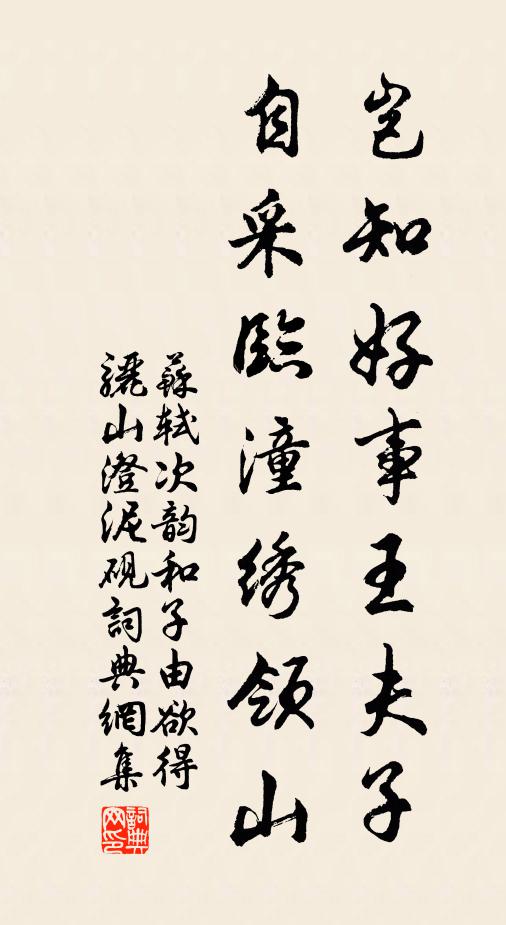 岂知好事王夫子
自采临潼绣领山
蘇軾次韵和子由欲得
驪山澄泥硯詞典網集
詞典
网印